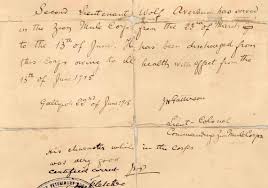 Second Lieutenant Wolf Averbuch has served
in the Zion Mule Corps from the 22nd of March
to the 13th of June. He has been discharged from
this Corps owing to ill health with effect from the
13th of June 1915
Gallipoli 22nd June 1915
JHPatterson
Lieut-Colonel
Commanding Zion Mule Corps
His character while in the Corps
was very good
certified correct